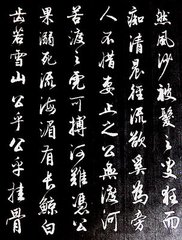 然風沙被髮之叟狂而
癡清晨徑流欲奚為旁
人不惜妻止之公無渡河
苦渡之虎可搏河難憑公
果溺死流海湄有長鯨白
齒若雪山公乎公乎挂骨